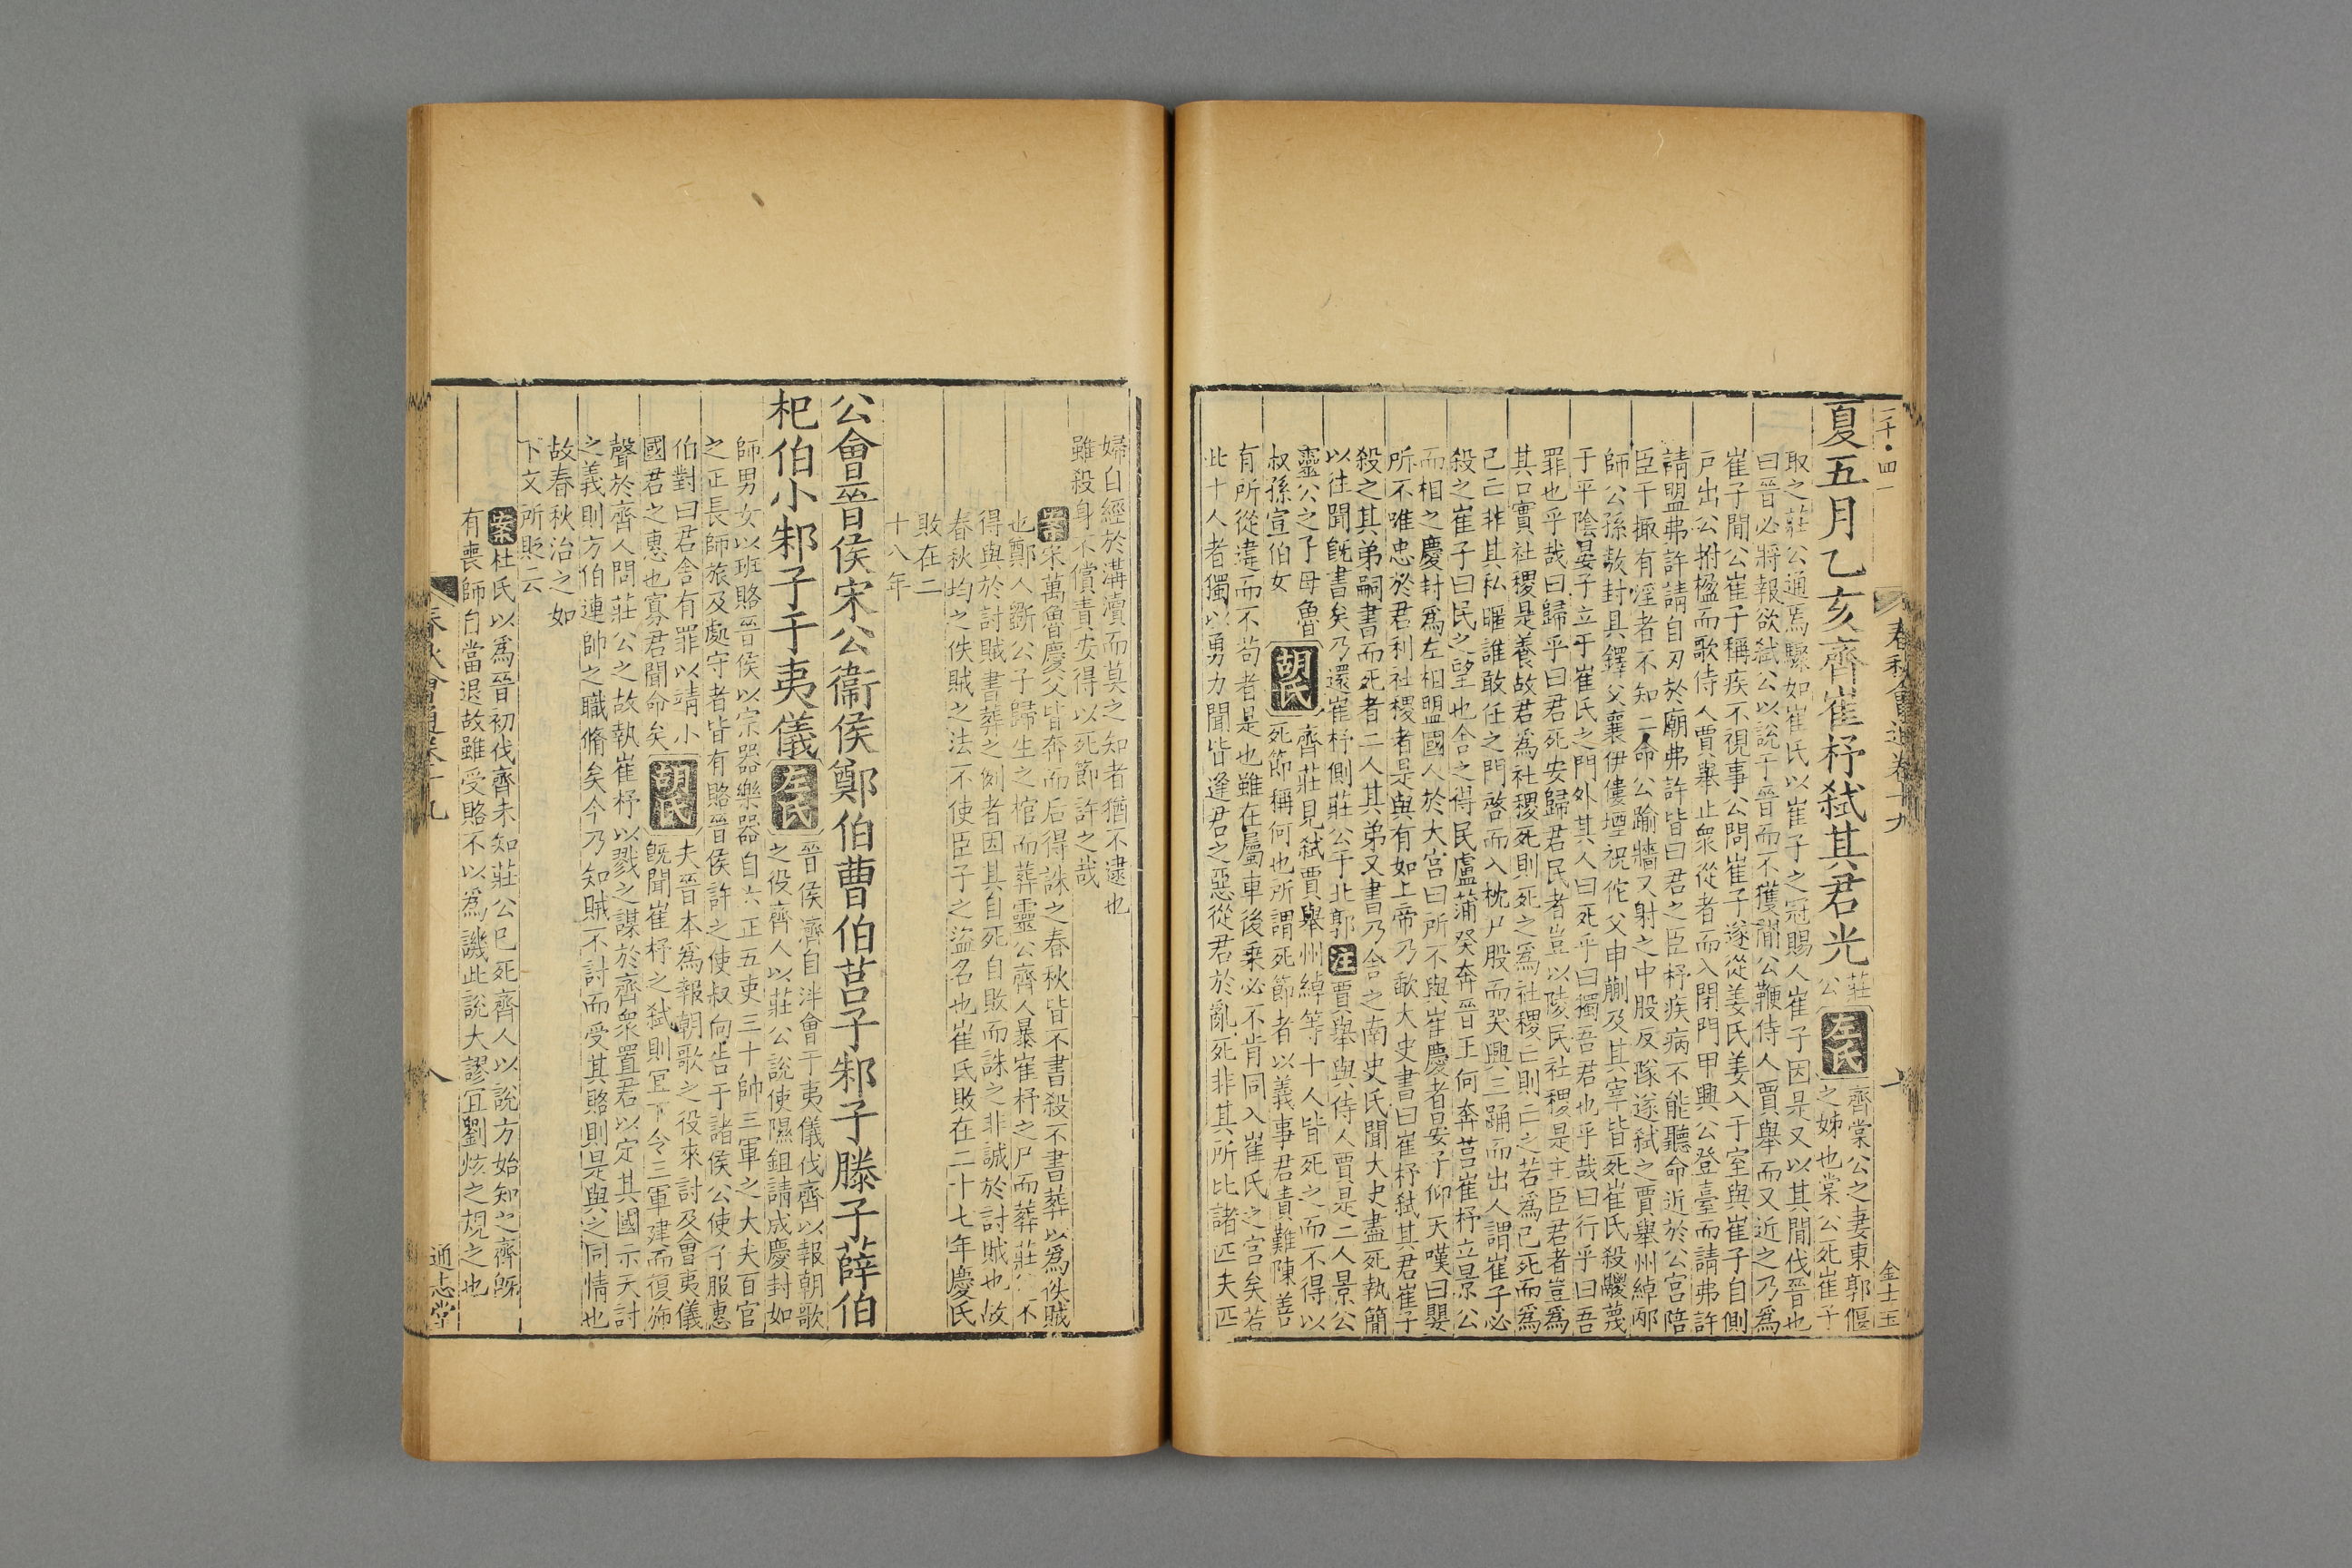 夏五月乙亥齊崔杼弑其君光
莊公
左氏
齊棠公之妻東郭偃
之姊也棠公死崔子
取之莊公通焉驟如崔氏以崔子之冠賜人崔子因是又以其間伐晉也
曰晉必將報欲弑公以說于晉而不獲間公鞭侍人賈舉而又近之乃爲
崔子間公崔子稱疾不視事公問崔子遂從姜氏姜入于室與崔子自側
戶出公拊楹而歌侍人賈舉止衆從者而入閉門甲興公登臺而請弗許
請盟弗許請自刃於廟弗許皆曰君之臣杼疾病不能聽命近於公宮陪
臣干掫有淫者不知二命公踰牆又射之中股反隊遂弑之賈舉州綽邴
師公孫敖封具鐸父襄伊僂堙祝佗父申蒯及其宰皆死崔氏殺鬷蔑
于平陰晏子立于崔氏之門外其人曰死乎曰獨吾君也乎哉曰行乎曰吾
罪也乎哉曰歸乎曰君死安歸君民者豈以陵民社稷是主臣君者豈爲
其口實社稷是養故君爲社稷死則死之爲社稷亡則亡之若爲己死而爲
己亡非其私暱誰敢任之門啓而入枕尸股而哭興三踊而出人謂崔子必
殺之崔子曰民之望也舍之得民盧蒲癸奔晉王何奔莒崔杼立景公
而相之慶封爲左相盟國人於大宮曰所不與崔慶者晏子仰天嘆曰嬰
所不唯忠於君利社稷者是與有如上帝乃歃大史書曰崔杼弑其君崔子
殺之其弟嗣書而死者二人其弟又書乃舍之南史氏聞大史盡死執簡
以往聞既書矣乃還崔杼側莊公于北郭注賈舉與侍人賈是二人景公
靈公之子母魯
叔孫宣伯女
胡氏
齊莊見弑賈舉州綽等十人皆死之而不得以
死節稱何也所謂死節者以義事君責難陳善
有所從違而不苟者是也雖在屬車後乗必不肯同入崔氏之宮矣若
此十人者獨以勇力聞皆逢君之惡從君於亂死非其所比諸匹夫匹
春秋會通卷十九
金士玉
婦自經於溝瀆而莫之知者猶不逮也
雖殺身不償責安得以死節許之哉
案宋萬魯慶父皆奔而后得誅之春秋皆不書殺不書葬以爲佚賊
也鄭人斲公子歸生之棺而葬靈公齊人暴崔杼之尸而葬莊公不
得與於討賊書葬之例者因其自死自敗而誅之非誠於討賊也故
春秋均之佚賊之法不使臣子之盜名也崔氏敗在二十七年慶氏
敗在二
十八年
公會晉侯宋公衞侯鄭伯曹伯莒子邾子滕子薛伯
杞伯小邾子于夷儀
左氏
晉侯濟自泮會于夷儀伐齊以報朝歌
之役齊人以莊公說使隰鉏請成慶封如
師男女以班賂晉侯以宗器樂器自六正五吏三十帥三軍之大夫百官
之正長師旅及處守者皆有賂晉侯許之使叔向告于諸侯公使子服惠
伯對曰君舍有罪以靖小
國君之惠也寡君聞命矣
胡氏
夫晉本爲報朝歌之役來討及會夷儀
既聞崔杼之弑則宜下令三軍建而復旆
聲於齊人問莊公之故執崔杼以戮之謀於齊衆置君以定其國示天討
之義則方伯連帥之職脩矣今乃知賊不討而受其賂則是與之同情也
故春秋治之如
下文所貶云
案杜氏以爲晉初伐齊未知莊公已死齊人以說方始知之齊既
有喪師自當退故雖受賂不以爲譏此說大謬宜劉炫之規之也
春秋會通卷十九
八
通志堂